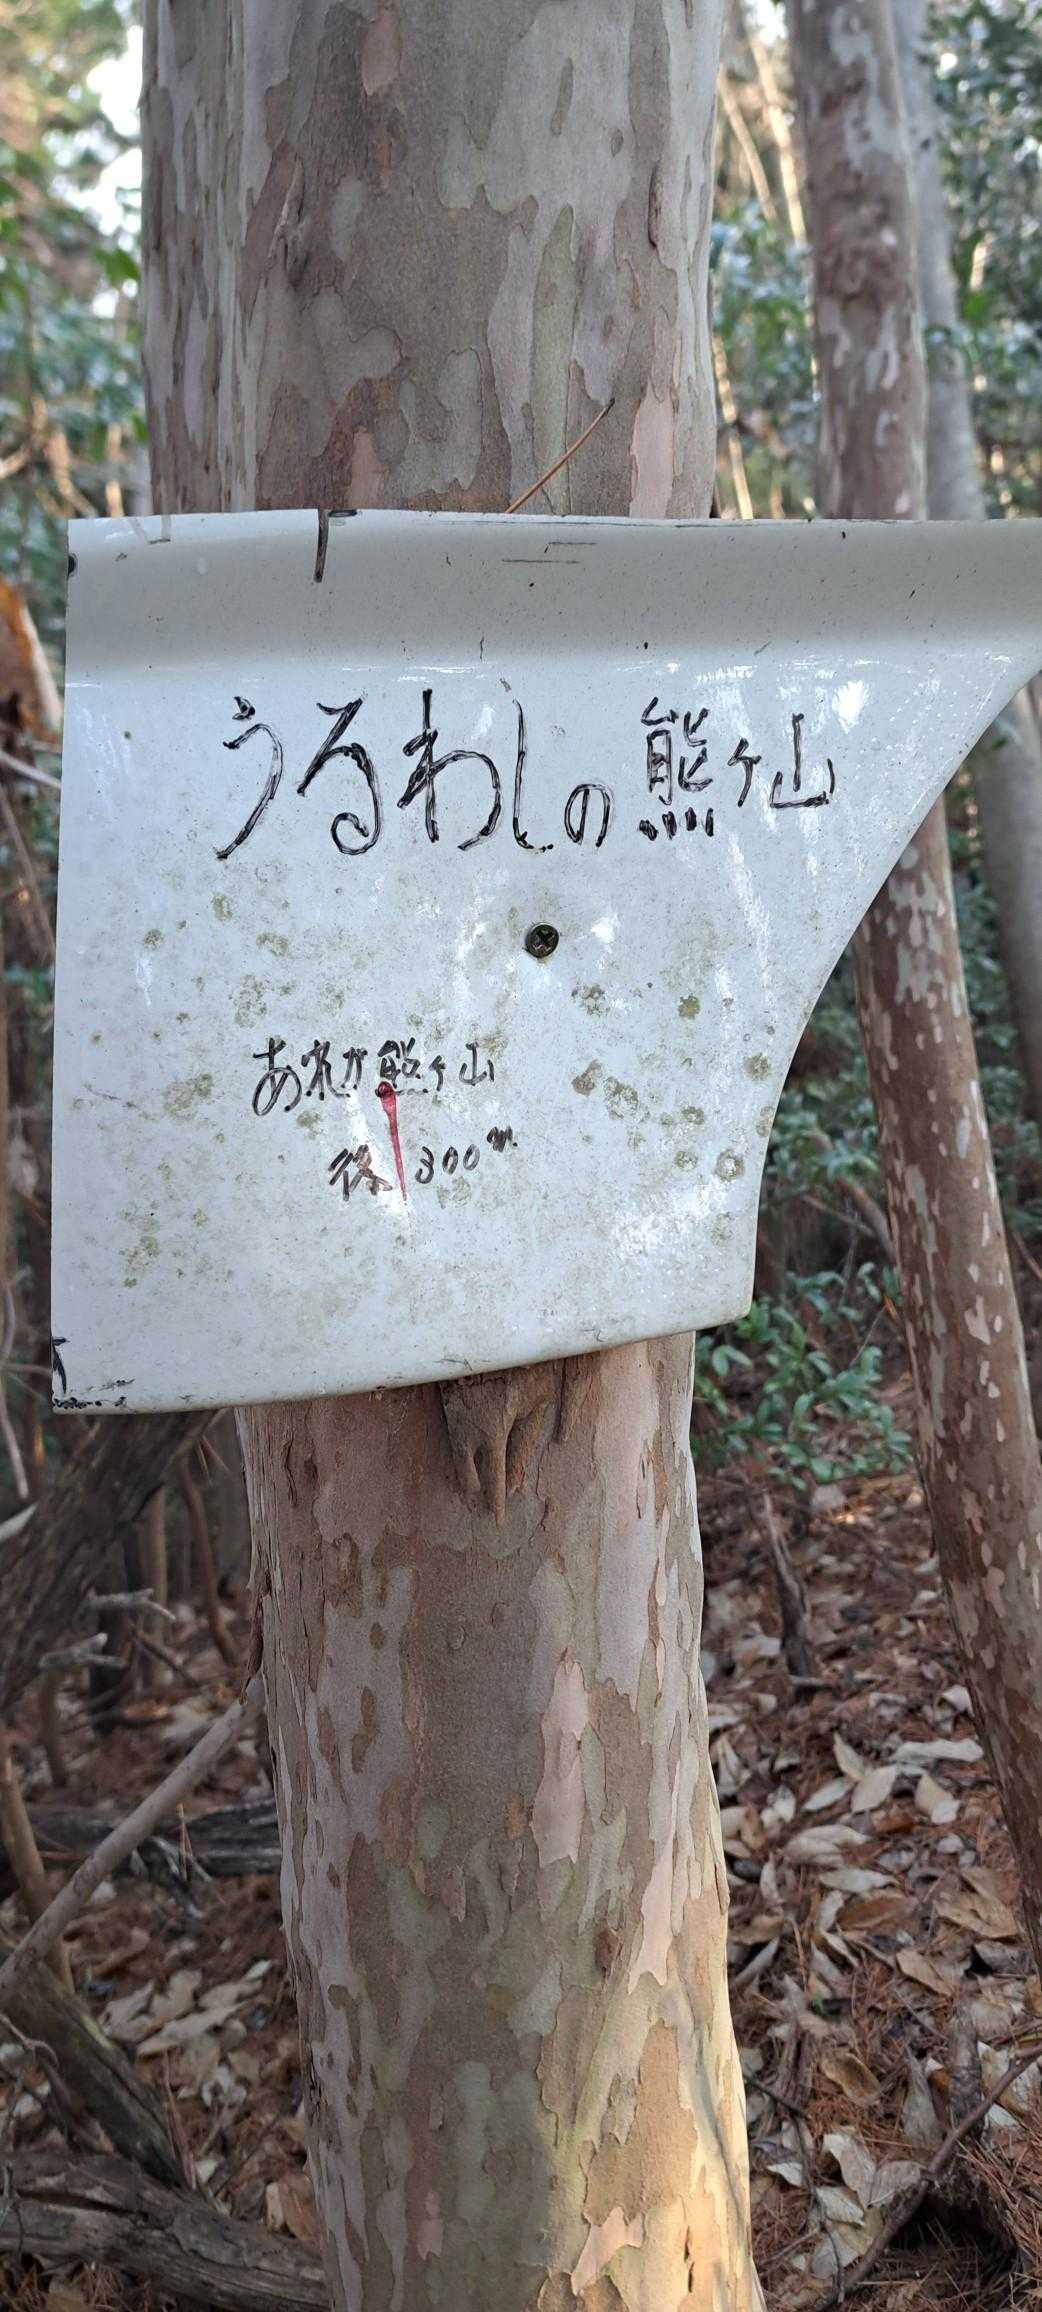 うるわしの熊ヶ山
あれが熊ヶ山
後300m